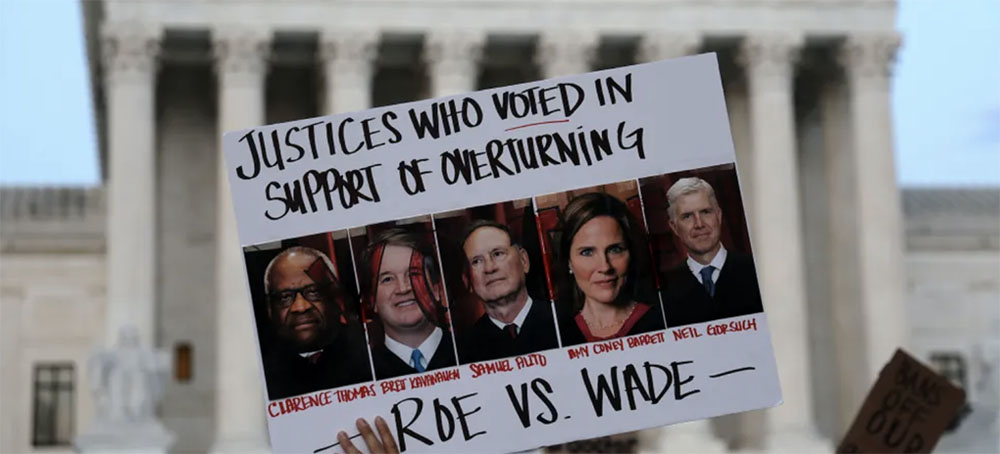 JUSTICES WHO VOTED IN
SUPPORT OF OVERTURNING
CLARENCE THOMAS BRETT KAVANAUGH SAMUEL ALITO AMY CONEY BARRETT NEIL GORSUCH
— ROE VS. WADE —
BANS
OFF
OUR